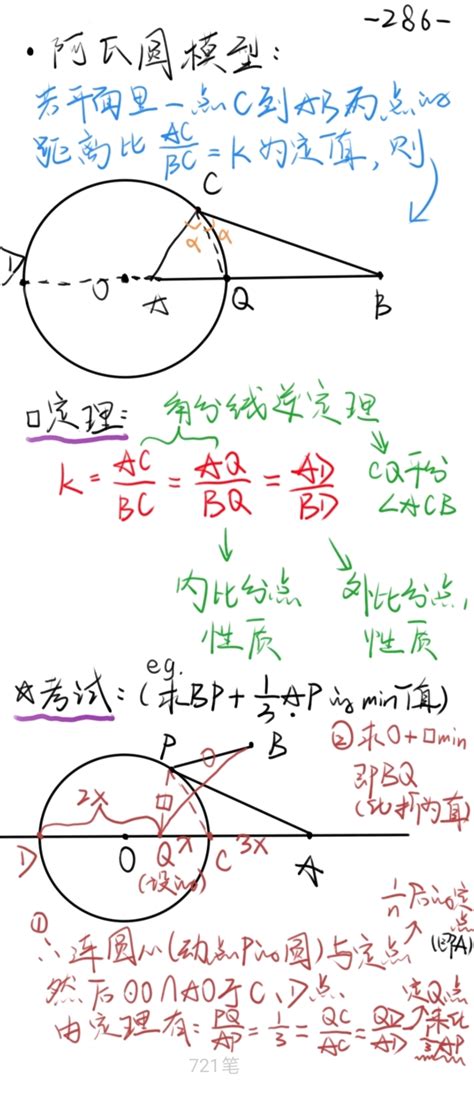 -286-
· 阿氏圆模型:
若平面里一点C到AB两点的
距离比 AC/BC = K 为定值, 则
C
α α
D O A Q B
□定理: 角分线逆定理
k = AC/BC = AQ/BQ = AD/BD
CQ平分
∠ACB
内比分点 外比分点,
性质 性质
eg.
☆考试: (求BP+1/3AP的min值)
P B
② 求O+□min
即BQ
(比折两直)
2x □ O
D O Q x C 3x A
(设的)
1/n 后的定点
(即A)
①
∴连圆心(动点P的圆)与定点
然后⊙O∩AO于C、D点. 定Q点
由定理有: PQ/AP = 1/3 = QC/AC = QD/AD 来比
1/3AP
721笔